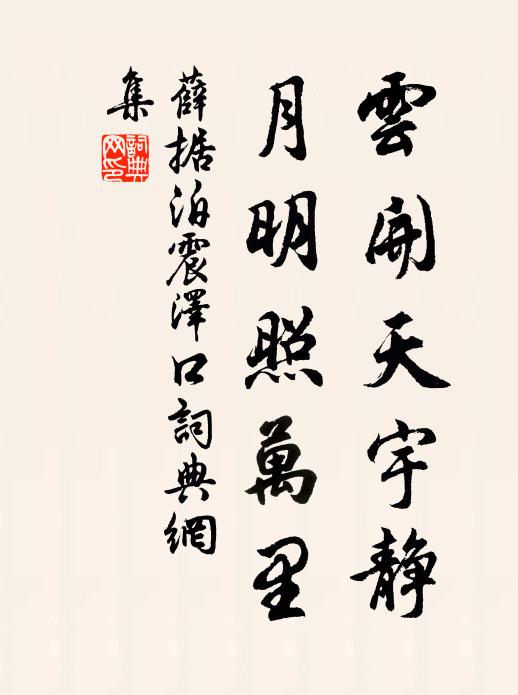 雲開天宇静
月明照萬里
薛据泊震澤口詞典網
集
詞典
网印